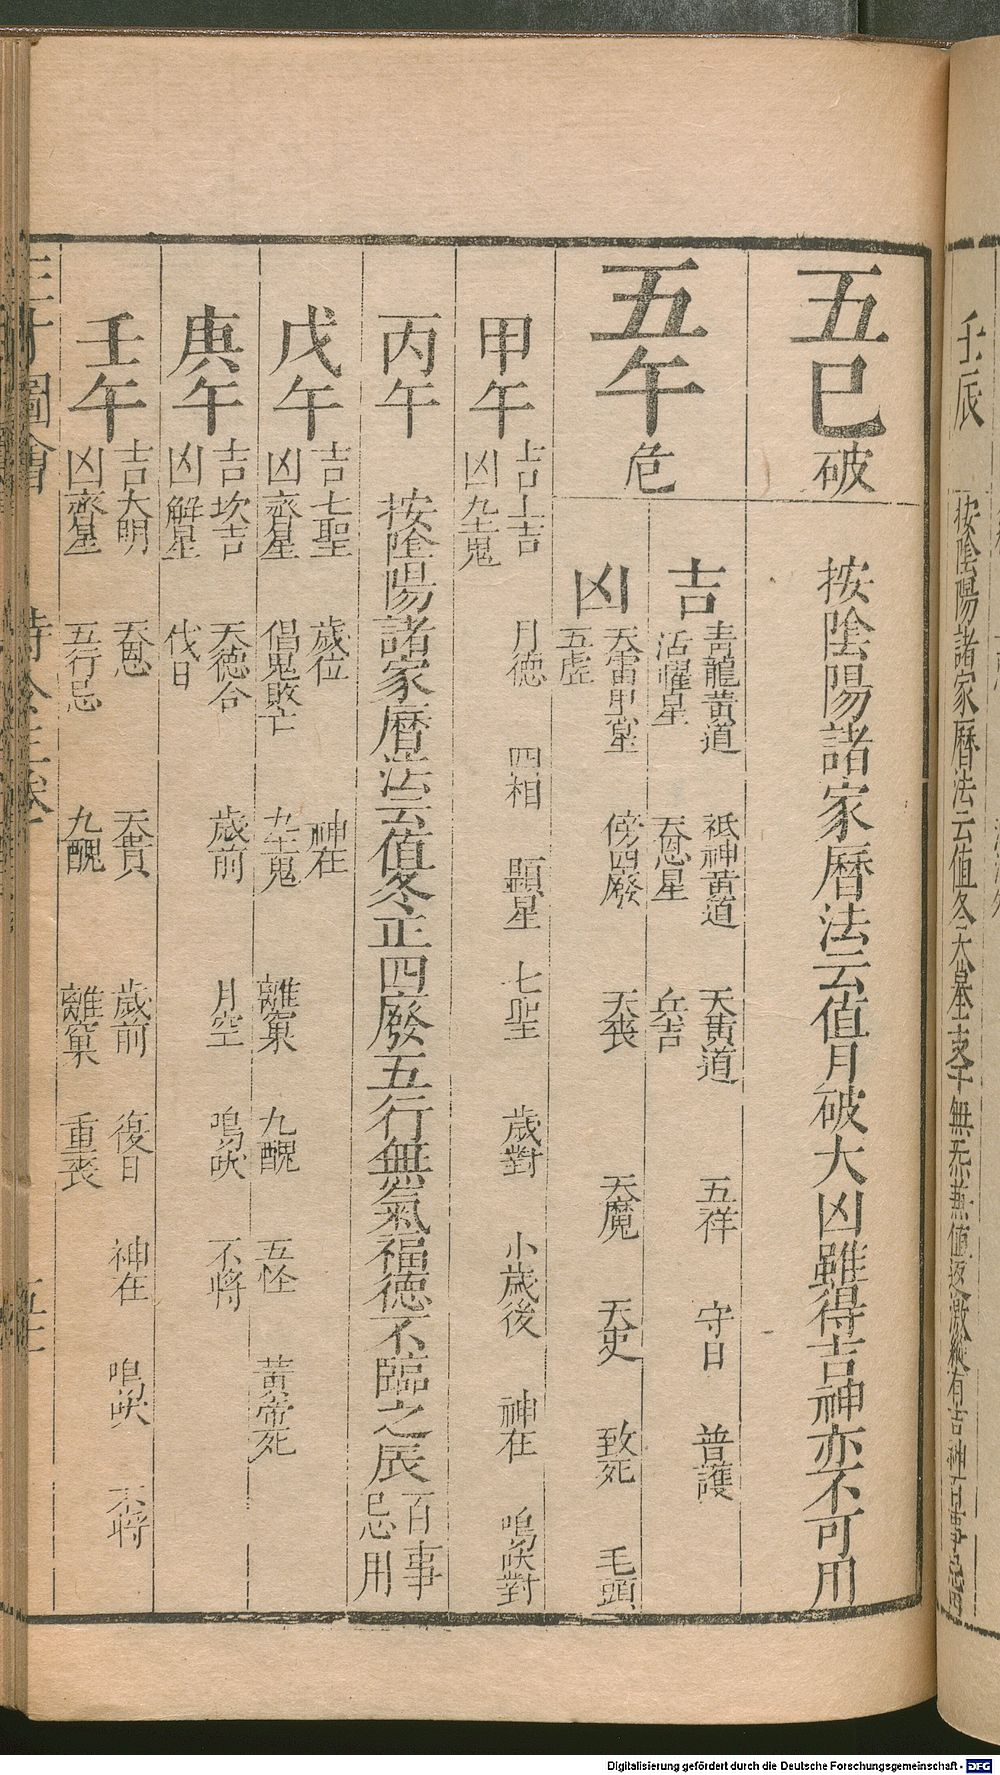 壬辰 按陰陽諸家曆法云值冬天墓
五巳破 按陰陽諸家曆法云值月破大凶雖得吉神亦不可用
五午危
吉 青龍黃道 祗神黃道 天黃道 五祥 守日 普護
活曜星 天恩星 兵吉
凶 天雷黑星 傍四廢 天喪 天魔 天史 致死 毛頭
五虛
甲午 吉上吉 月德 四相 顯星 七聖 歲對 小歲後 神在 鳴吠對
凶九土鬼
丙午 按陰陽諸家曆法云值冬正四廢五行無氣福德不臨之辰百事忌用
戊午 吉七聖 歲位 神在
凶齊星 倡鬼敗亡 九土鬼 離窠 九醜 五怪 黃帝死
庚午 吉坎吉 天德合 歲前 月空 鳴吠 不將
凶解星 伐日
壬午 吉大明 天恩 天貴 歲前 復日 神在 鳴吠 不將
凶齊星 五行忌 九醜 離窠 重喪
三才圖會
Digitalisierung gefördert durch die Deutsche Forschungsgemeinschaft - DFG